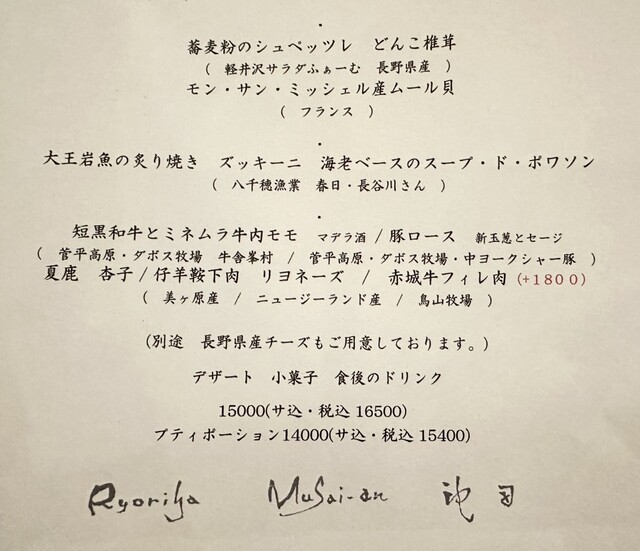 ・
蕎麦粉のシュペッツレ　どんこ椎茸
(　軽井沢サラダふぁーむ　長野県産　)
モン・サン・ミッシェル産ムール貝
(　フランス　)
・
大王岩魚の炙り焼き　ズッキーニ　海老ベースのスープ・ド・ポワソン
(　八千穂漁業　春日・長谷川さん　)
・
短黒和牛とミネムラ牛内モモ　マデラ酒 / 豚ロース　新玉葱とセージ
(　菅平高原・ダボス牧場　牛舎峯村　/　菅平高原・ダボス牧場・中ヨークシャー豚　)
夏鹿　杏子 / 仔羊鞍下肉　リヨネーズ　/　赤城牛フィレ肉 (+1800)
(　美ヶ原産　/　ニュージーランド産　/　鳥山牧場　)
(別途　長野県産チーズもご用意しております。)
デザート　小菓子　食後のドリンク
15000(サ込・税込 16500)
プティポーション14000(サ込・税込 15400)
Ryoriya　Musai-an　池田